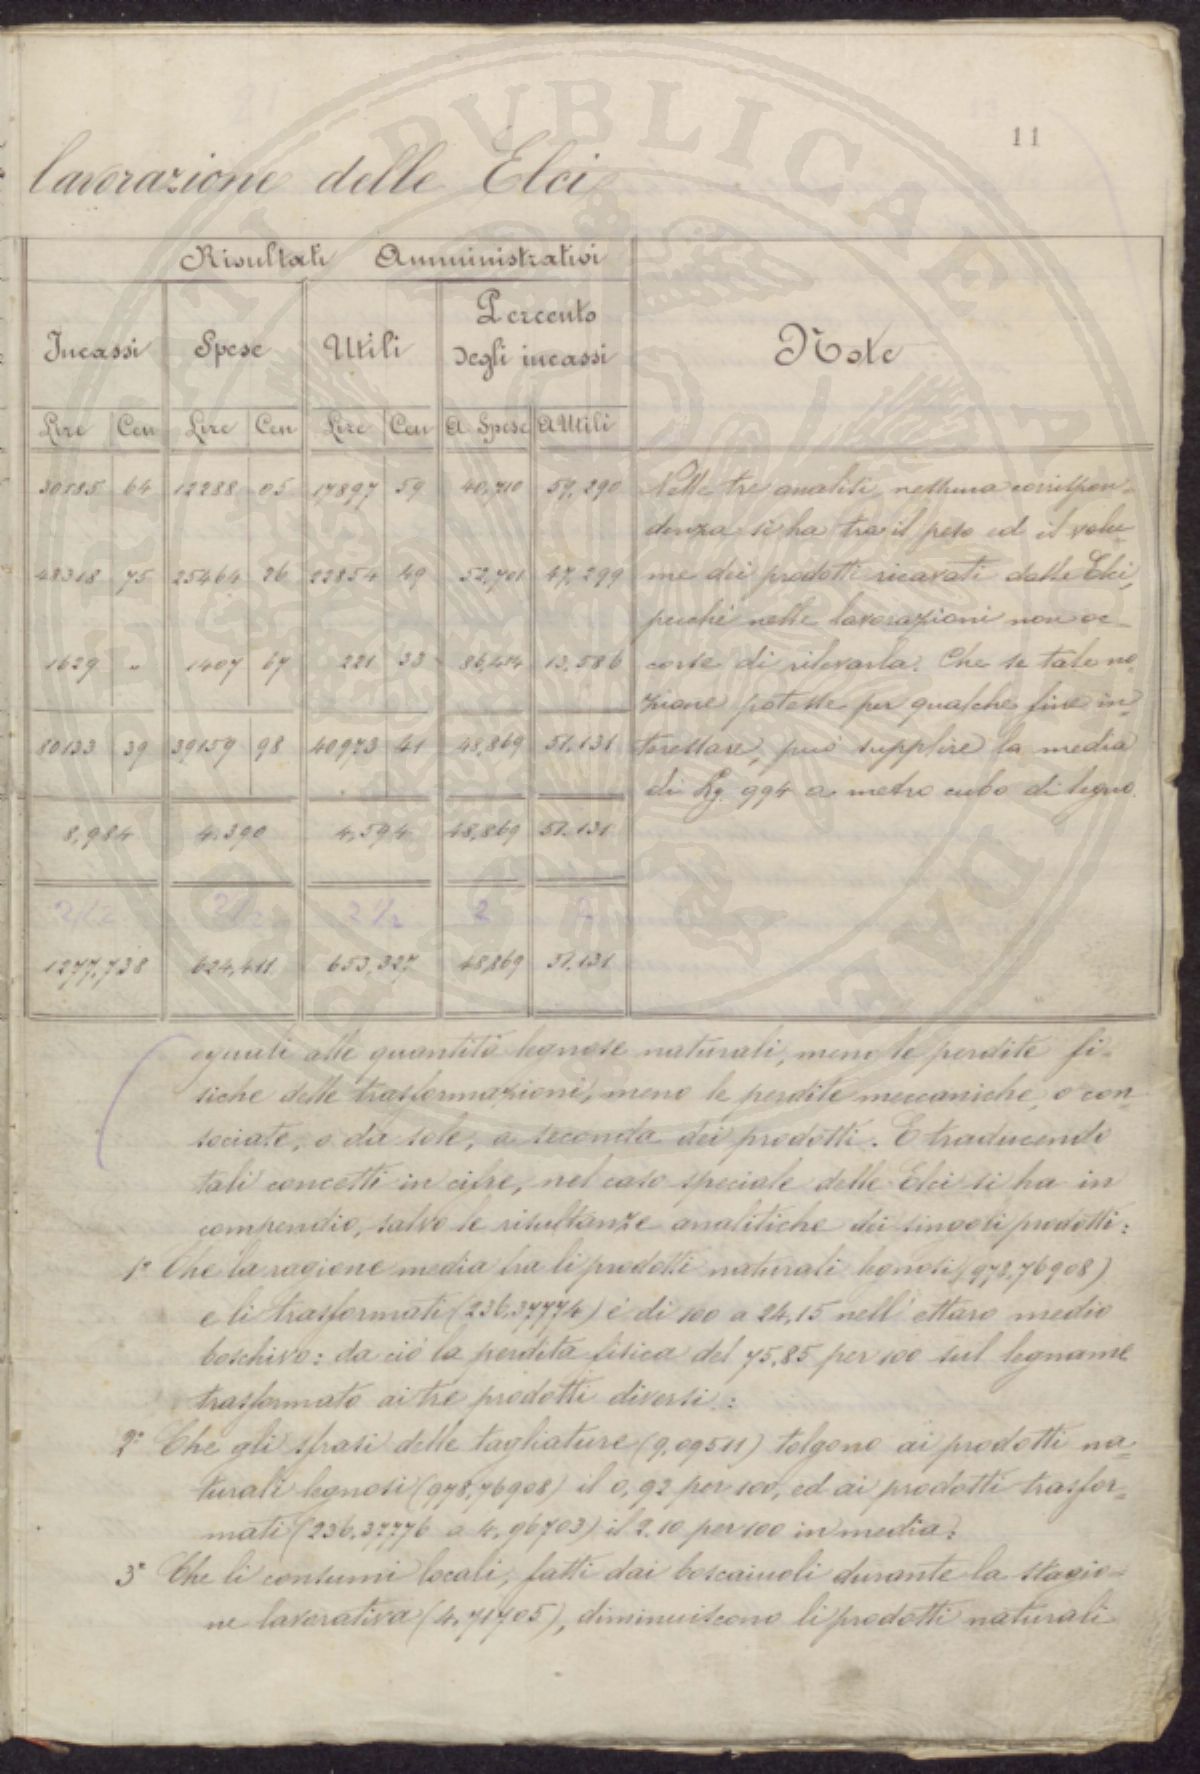 11
lavorazione delle Elci
Risultati Amministrativi
Incassi Spese Utili Percento degli incassi Note
Lire Cen Lire Cen Lire Cen A Spese A Utili
30185 64 12288 05 17897 59 40,710 59,290
48318 75 25464 26 22854 49 52,701 47,299
1629 „ 1407 67 221 33 86,414 13,586
80133 39 39159 98 40973 41 48,869 51.131
8,984 4.390 4,594 48,869 51.131
2/2 2/2 2/2 2
1277,738 624,411 653,327 48,869 51.131
Nelle tre analisi, nessuna corrispon-
denza si ha tra il peso ed il volu-
me dei prodotti ricavati dalle Elci,
perché nelle lavorazioni non oc-
corse di rilevarla. Che se tale no-
zione potesse per qualche fine in-
teressare, può supplire la media
di Kg. 994 a metro cubo di legno.
eguali alle quantità legnose naturali, meno le perdite fi-
siche delle trasformazioni, meno le perdite meccaniche, o con-
sociate, o da sole, a seconda dei prodotti. E traducendo
tali concetti in cifre, nel caso speciale delle Elci si ha in
compendio, salvo le risultanze analitiche dei singoli prodotti:
1° Che la ragione media tra li prodotti naturali legnosi (978,76908)
e li trasformati (236,37774) è di 100 a 24,15 nell' ettaro medio
boschivo: da ciò la perdita fisica del 75,85 per 100 sul legname
trasformato ai tre prodotti diversi:
2° Che gli sfrasi delle tagliature (9,09511) tolgono ai prodotti na-
turali legnosi (978,76908) il 0,92 per 100, ed ai prodotti trasfor-
mati (236,37776 a 4,96703) il 2.10 per 100 in media:
3° Che li consumi locali, fatti dai boscaiuoli durante la stagio-
ne lavorativa (4,71705), diminuiscono li prodotti naturali